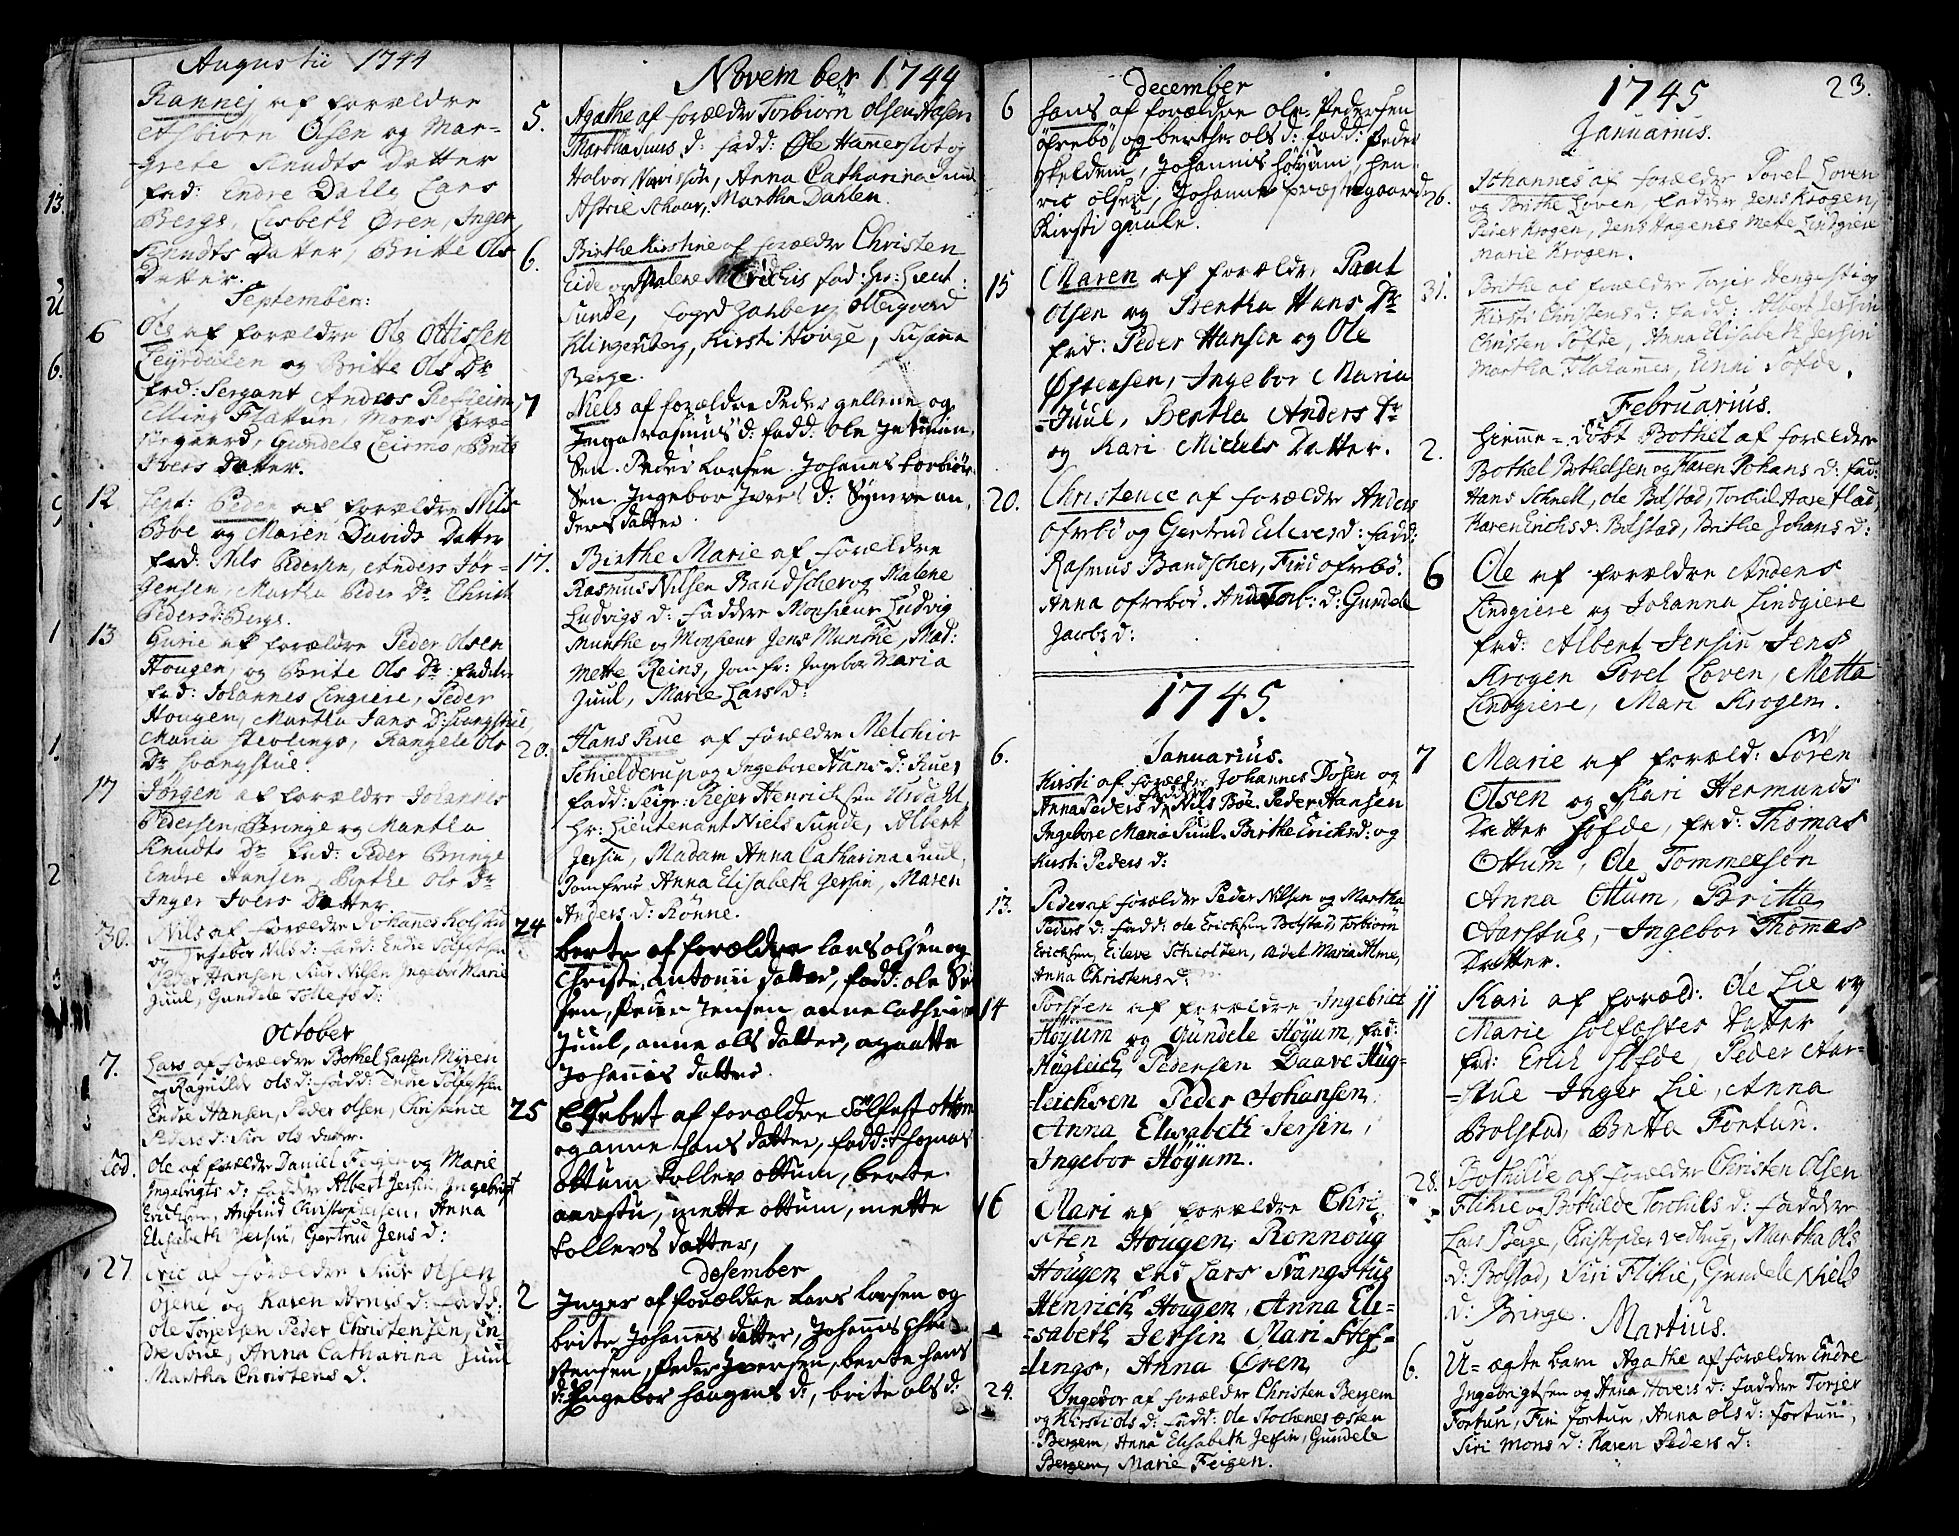 Augustii 1744
Rannej af forældre
Asbiörn Olsen og Mar-
grete Knudts Datter
fad: Endre Dalle Lars
Berge, Lisbeth Øren, Inger
Knudts Datter, Britte Ols
Datter.
September:
6 Ole af forældre Ole Ottissen
og Britte Ols Dr
fad: Sergant Anders
gaard, Gundele
Ivers Datter.
12 Sept: Peder af forældre Nils
Boe og Maren Davids Datter
fad: Nils Pedersen, Anders Jör-
gensen, Martha Peder Dr Christi
Peders d: Berge.
13 Gurie af forældre Peder Olsen
Hougen, og Brite Ols Dr
fad: Johannes Lingiere, Peder
Hougen, Martha Jans D: Svangstue,
Maria Steflings, Rangele Ols
Dr Svangstue.
17 Jörgen af forældre Johannes
Pedersen Bringe og Martha
Knudts Dr fad: Peder Bringe
Endre Hansen, Birthe Ols Dr
Inger Ivers Datter
30. Nils af forældre Johannes Kolstad
og Ingebor Nils d: fadd: Endre
Peder Hansen Siur Nilsen Ingebor Marie
Juul, Gundele Tollefs d:
October
7. Lars af forældre Bothel Larsen Myren
og Ragnilde Ols d: fadd: Endre
Endre Hansen, Peder Olsen, Christence
Peders d: Siri Ols datter.
Ole af forældre Daniel og Marie
Ingebrigts d: faddre Albert Jersin, Ingebrigt
Erichsen, Anfind Christophersen, Anna
Elisabeth Jersin, Gertrud Jens d:
27 Eric af forældre Siur Olsen
og Karen d: fadd:
Ole Torjersen Peder Christensen, En-
dre Anna Catharina Juul
Martha Christens d.
November 1744
5. Agathe af forældre Torbiörn Olsen Aasen
Martha d: fadd: Ole Hamerslot og
Halvor, Anna Catharina Juul
Astrie Schaar, Martha Dahlen.
6. Birthe Kirstine af forældre Christen
Eide og Malene fad: Hr: Lieut:
Sunde,
Klingenberg, Kirsti Houge, Susanna
Berge.
7 Niels af forældre Peder gellene og
Inga rasmus d: fadd: ole Jetmun-
sen. Peder Larsen. Johanes torbiör-
sen. Ingebor Iver d: Synneve an-
ders datter.
17. Birthe Marie af forældre
Rasmus Nilsen Bandscher og Malene
Ludvigs d: faddre Monsieur Ludvig
Munthe og Monsieur Jens Munthe, Mad:
Mette Reins, Jomfr: Ingebor Maria
Juul, Marie Lars d:
20. Hans Rue af forældre Melchior
Schielderup og Ingebore Hans d: Rues
fadd: Seigr: Rejer Henrichsen Urdahl,
Hr: Lieutenant Niels Sunde, Albert
Jersin, Madam Anna Catharina Juul,
Jomfrue Anna Elisabeth Jersin, Maren
Anders d: Rönne.
24 berte af forældre Lars olsen og
Christi antonii datter, fadd: ole
sen, Peder Jensen anne Cathrine
Juul, anne ols datter, agaatte
Johannis datter.
25 Elsebet af forældre Sölfest ottom
og anne hans datter, fadd: thomas
ottum tollev ottum, berte
aarstu, mette ottum, mette
tollevs datter,
Desember
2 Inger af forældre Lars Larsen og
brite Johannes datter, Johannis Chri
stensen, Peder Iversen, berte hans
d: Ingebor haagens d:, brite ols d:
December
6 Hans af forældre ole Pedersen
öfrebö og berthe ols d: fadd: Peder
Skieldem, Johannis höyum, hen-
ric olsen, Johanne præstegaarden
Kirsti
15 Maren af forældre Paul
Olsen og Brentha Hans Dr
fad: Peder Hansen og Ole
Østensen, Ingebor Maria
Juul, Bertha Anders Dr
og Kari Michels Datter.
20. Christence af forældre Anders
ofrebö og Gertrud Eilevs d: fadd:
Rasmus Bandscher, Find ofrebö.
Anna ofrebö. Anna Torb: d: Gundele
Jacobs d:
1745.
Januarius.
6. Kirsti af forældre Johannes Dösen og
Anna Peders d: faddre Nils Böe. Peder Hansen
Ingebore Maria Juul. Birthe Erichs d: og
Kirsti Peders d:
13. Peder af forældre Peder Nilsen og Martha
Peders d: fadd: ole Erichsen Bolstad, Torbiörn
Erichsen, Eileve Schiolden, Adel Maria Alme,
Anna Christens d:
14 Torsten af forældre Ingebrict
Höyum og Gündele Höyum, fad:
Hügleich Pedersen Daave Hüg-
leichsen Peder Johansen,
Anna Elisabeth Jersin,
Ingebor Höyum.
16 Mari af forældre Chri
sten Hougen, Ronnoug
Hougen fad Lars Svangstue
Henrich Hougen, Anna Eli-
sabeth Jersin Mari Stef-
lings, Anna Øren
24. Ingebor af forældre Christen Bergem
og Kirsti ols d: fadd: ole Stochenes østen
Bergem, Anna Elisabeth Jersin, Gundele
Bergem, Marie Feigen.
1745 23.
Januarius.
26. Johannes af forældre Povel Loven
og Brithe Loven, faddre Jens Krogen,
Peder Krogen, Jens Hagenes Mette Lindgiere
Marie Krogen.
31. Birthe af forældre Torjer Hengesti og
Kirsti Christens d: fadd: Albert Jersin
Christen Söfde, Anna Elisabeth Jersin
Martha Flahammer, Unni Söfde.
Februarius.
2. Hiemme-döbt Bothel af forældre
Bothel Bothelsen og Karen Johans d: fad:
Hans Schnell, ole Bolstad, Torchil Aase Flad,
Karen Erichs d: Bolstad, Brithe Johans d:
6 Ole af forældre Anders
Lindgiere og Johanna Lindgiere
fad: Albert Jersin Jens
Krogen Povel Loven, Metta
Lindgiere, Mari Krogen.
7 Marie af foræld: Sören
Olsen og Kari Hermunds
Datter Söfde, fad: Thomas
Ottum, Ole Tommesön
Anna Ottum, Britta
Aarstue, Ingebor Thomes
Datter.
11 Kari af foræld: Ole Lie og
Marie Solfæster Datter
fad: Erich Söfde, Peder Aar-
stue Inger Lie, Anna
Bolstad, Britta Fortun.
28. Bothilde af forældre Christen Olsen
Flikie og Bothilde Torchils d: faddre
Lars Berge, Christopher Vedhug, Martha Ols
d: Bolstad, Siri Flikie, Gundele Niels
d: Bringe.
Martius.
6. U-ægte barn Agathe af forældre Endre
Ingebrigtsen og Anna Hovers d: faddre Torjer
Fortun, Fin Fortun, Anna ols d: Fortun,
Siri Mons d: Karen Peders d: